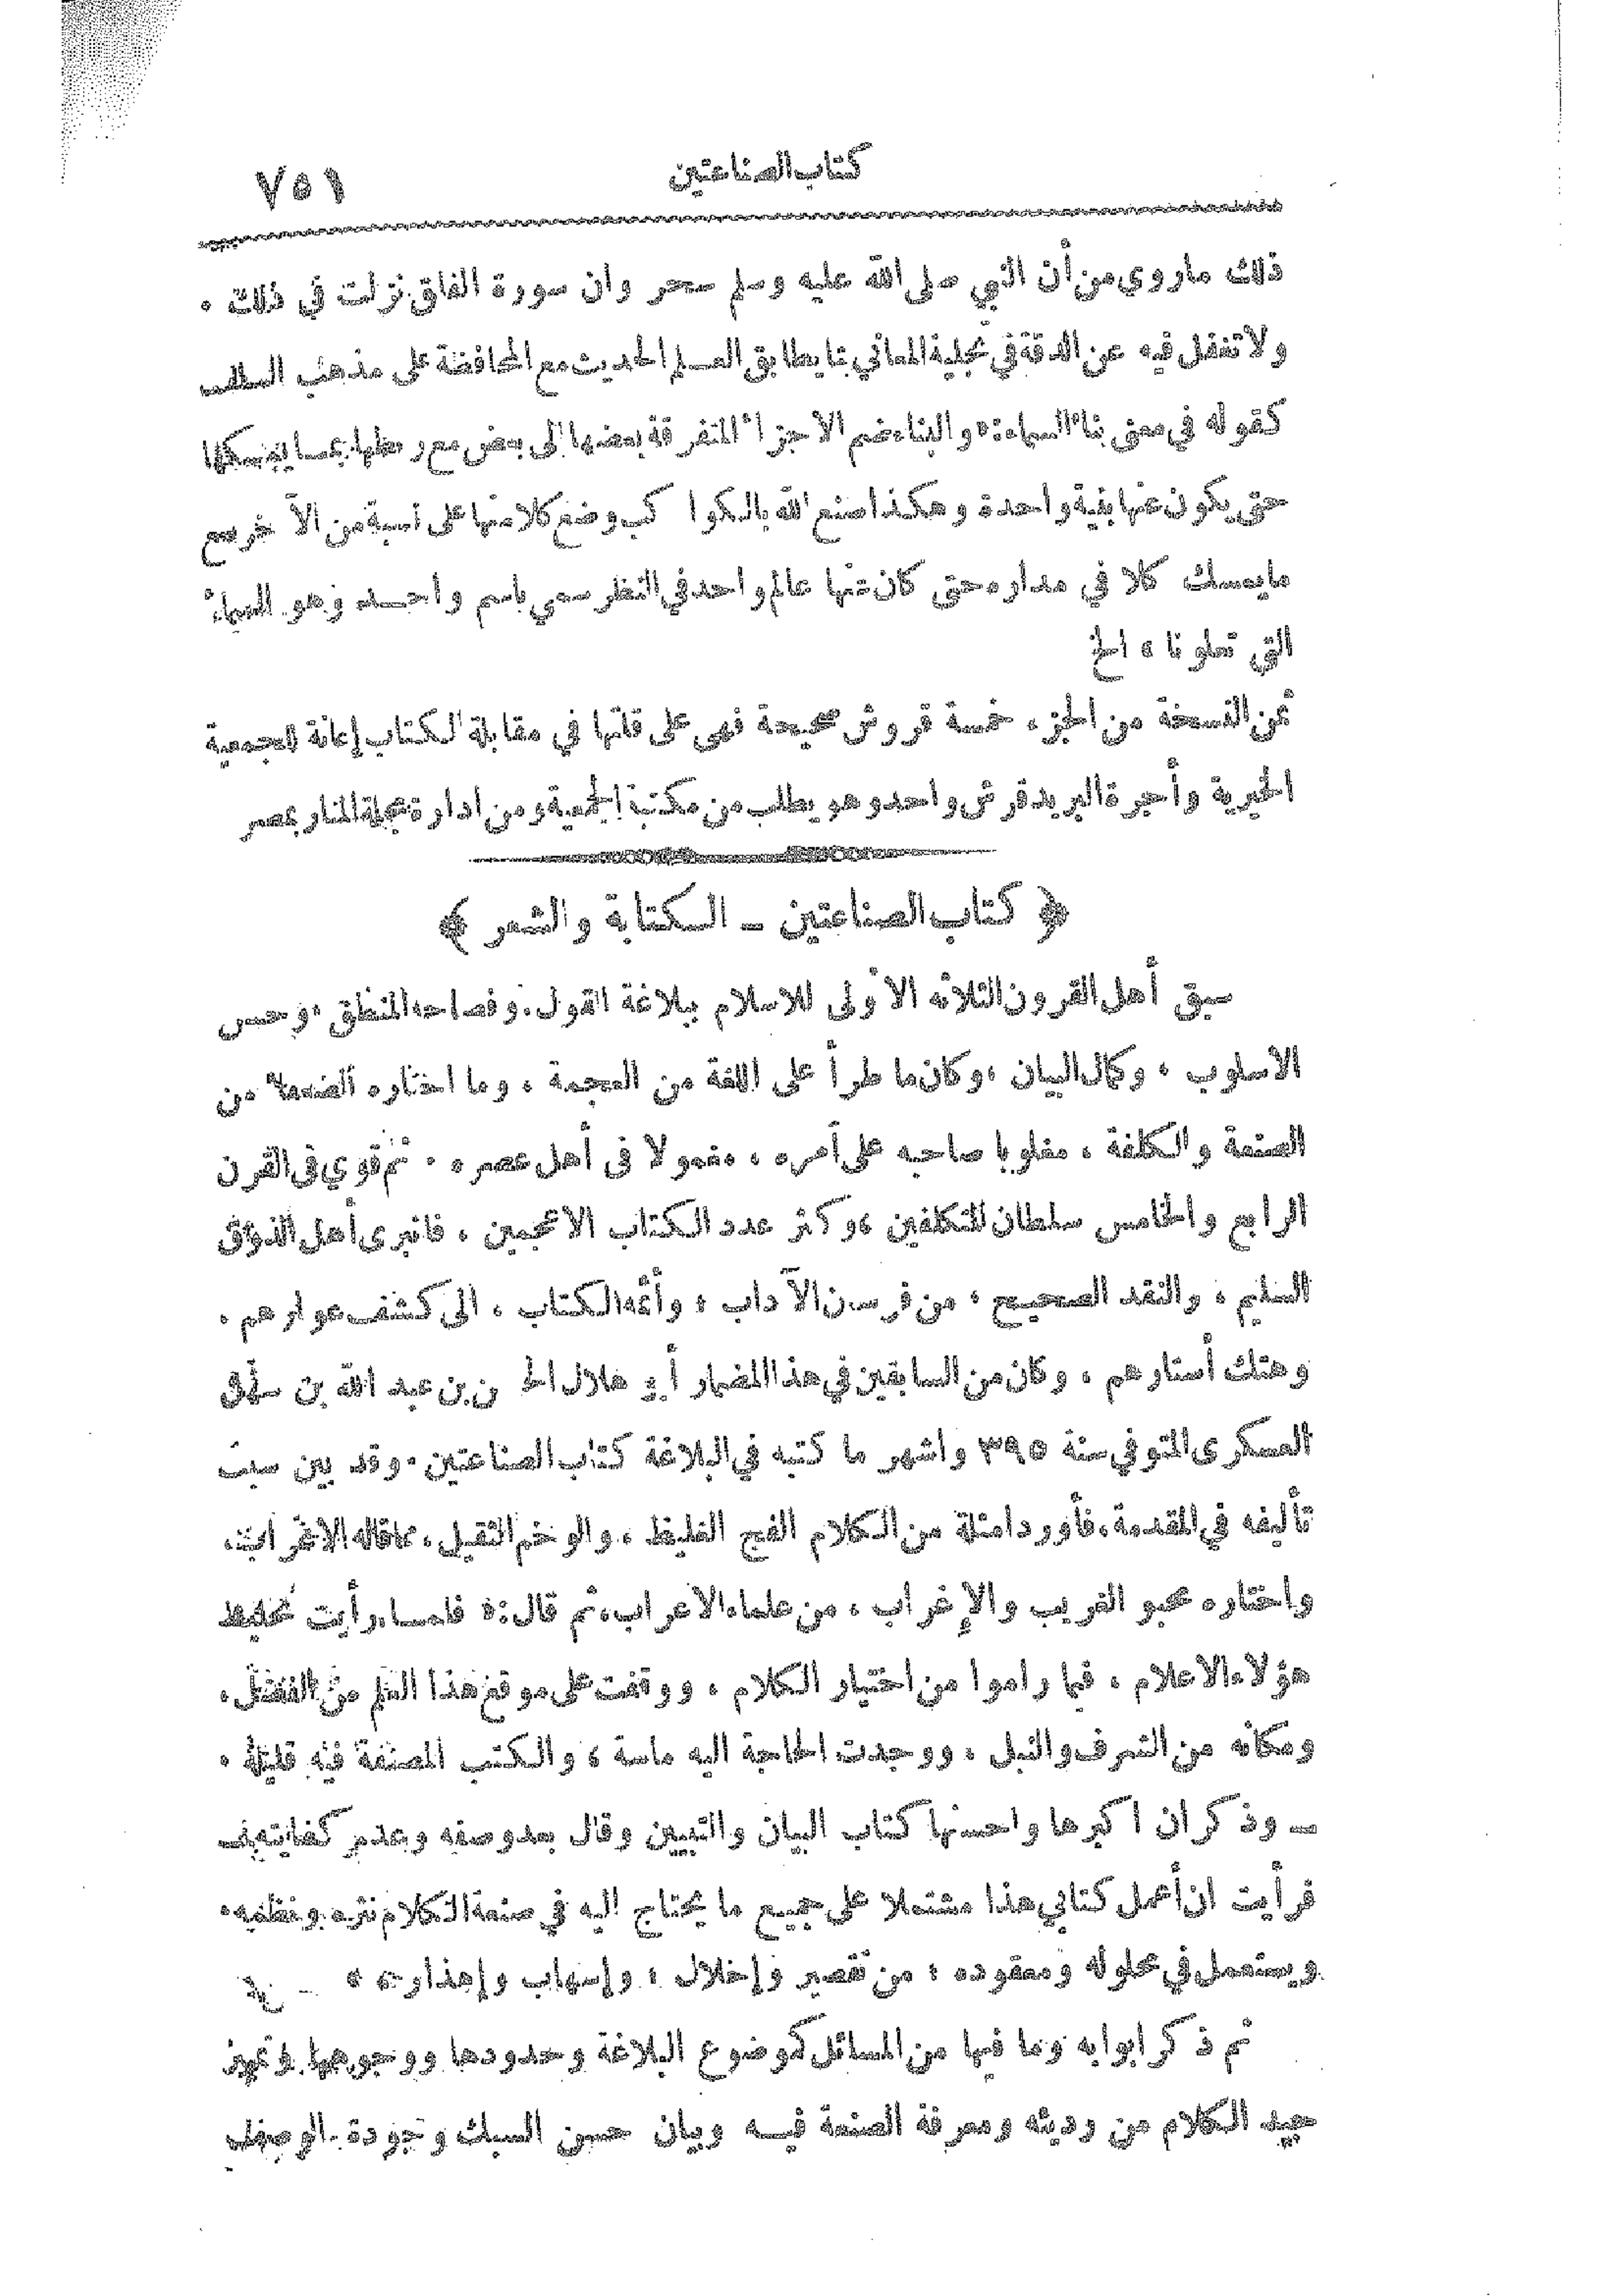 كتاب الصناعتين ٧٥١
ذلك ماروي من أن النبي صلى الله عليه وسلم سحر وان سورة الفلق نزلت في ذلك .
ولا تغفل فيه عن الدقة في تجلية المعاني بما يطابق العلم الحديث مع المحافظة على مذهب السلف
كقوله في معنى بناء السماء: « والبناء ضم الاجزاء المتفرقة بعضها الى بعض مع ربطها بما يمسكها
حتى يكون عنها بنية واحدة وهكذا صنع الله بالكواكب وضع كلا منها على نسبة من الآخر مع
ما يمسك كلا في مداره حتى كان منها عالم واحد في النظر سمي باسم واحد وهو السماء
التي تعلونا » الخ
ثمن النسخة من الجزء خمسة قروش صحيحة فهي على قلتها في مقابلة الكتاب إعانة للجمعية
الخيرية وأجرة البريد قرش واحد وهو يطلب من مكتبة الجمعية ومن ادارة مجلة المنار بمصر
﴿ كتاب الصناعتين ـ الكتابة والشعر ﴾
سبق أهل القرون الثلاثة الأولى للاسلام ببلاغة القول . وفصاحة المنطق ، وحسن
الاسلوب ، وكمال البيان ، وكان ما طرأ على اللغة من العجمة ، وما اختاره الضعفاء من
الصنعة والكلفة ، مغلوبا صاحبه على أمره ، مخمولا فى أهل عصره . ثم قوي فى القرن
الرابع والخامس سلطان المتكلفين ، وكثر عدد الكتاب الاعجمين ، فانبرى أهل الذوق
السليم ، والنقد الصحيح ، من فرسان الآداب ، وأئمة الكتاب ، الى كشف عوارهم .
وهتك أستارهم ، وكان من السابقين في هذا المضمار أبو هلال الحسن بن عبد الله بن سهل
العسكرى المتوفي سنة ٣٩٥ واشهر ما كتبه في البلاغة كتاب الصناعتين . وقد بين سبب
تأليفه في المقدمة، فأورد امثلة من الكلام الفج الغليظ ، والوخم الثقيل ، مما قاله الاعراب ،
واختاره محبو الغريب والإغراب ، من علماء الاعراب، ثم قال: « فلما رأيت تخليط
هؤلاء الاعلام ، فيما راموا من اختيار الكلام ، ووقفت على موقع هذا العلم من الفضل ،
ومكانه من الشرف والنبل ، ووجدت الحاجة اليه ماسة ، والكتب المصنفة فيه قليلة .
ـ وذكر ان اكبرها واحسنها كتاب البيان والتبيين وقال بعد وصفه وعدم كفايته ـ
فرأيت ان أعمل كتابي هذا مشتملا على جميع ما يحتاج اليه في صنعة الكلام نثره ونظمه .
ويستعمل في محلوله ومعقوده ؛ من تقصير وإخلال ؛ وإسهاب وإهذار »
ثم ذكر ابوابه وما فيها من المسائل كموضوع البلاغة وحدودها ووجوهها وتمييز
جيد الكلام من رديئه ومعرفة الصنعة فيه وبيان حسن السبك وجودة الوصف